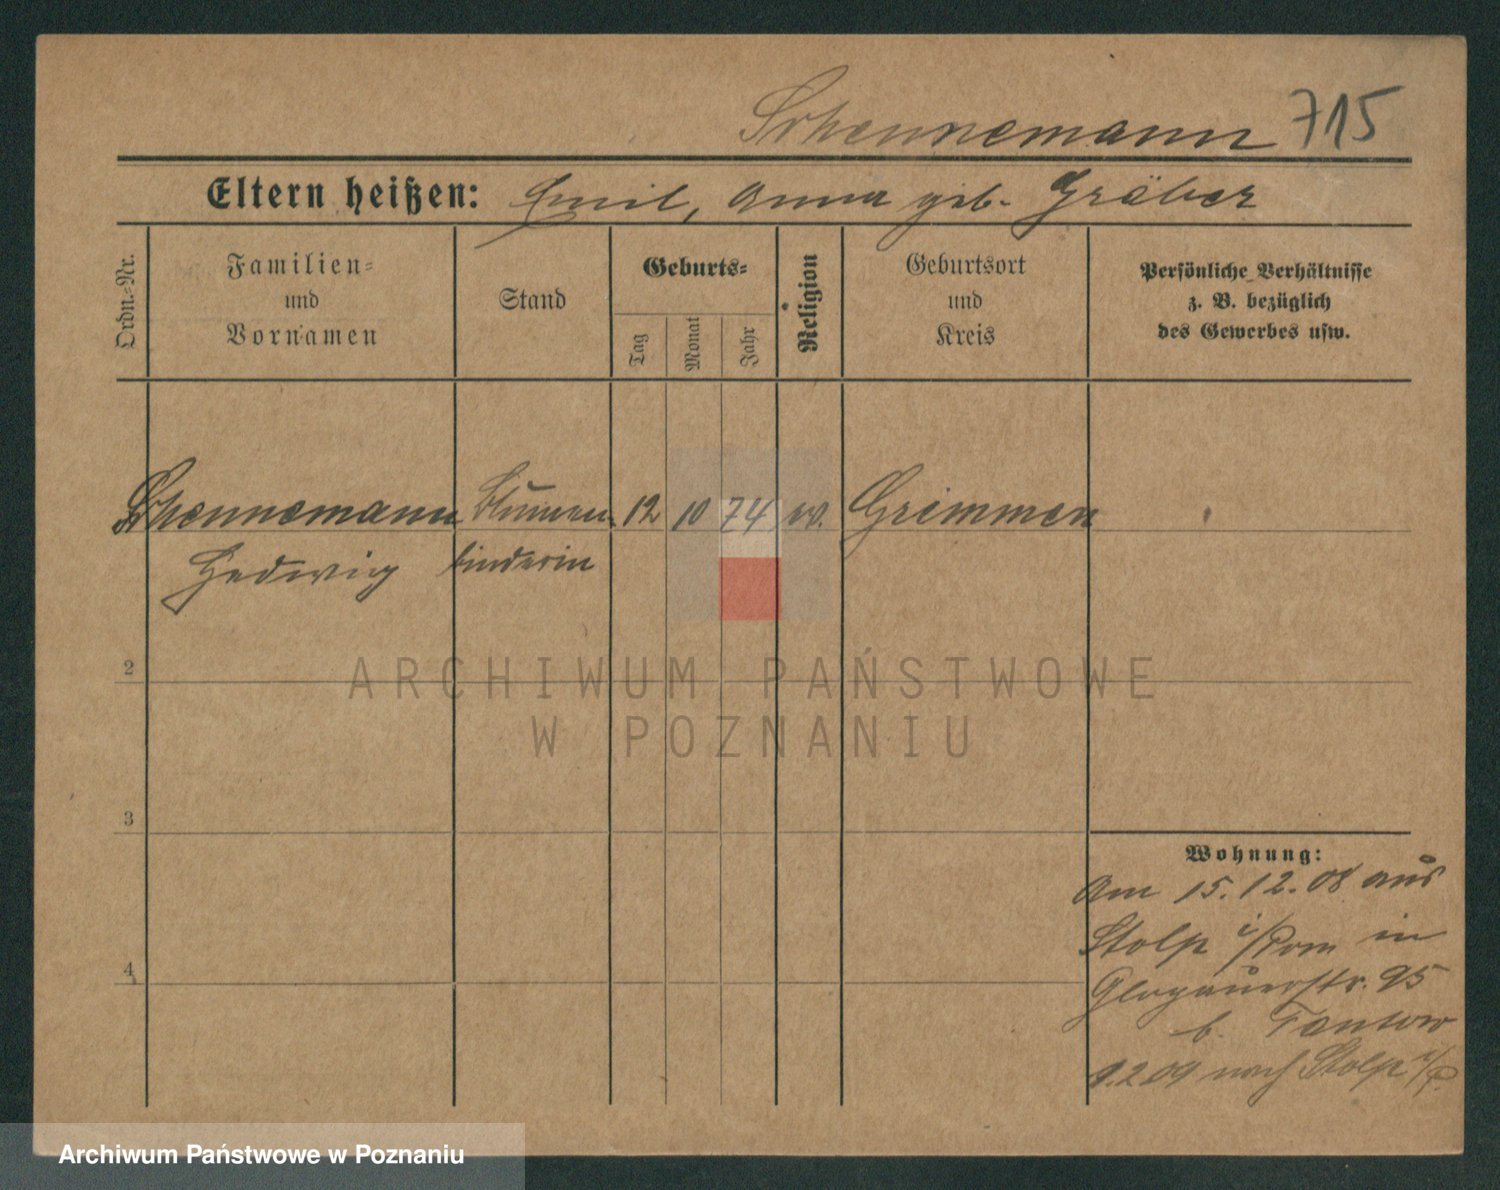 Schennemann 715
Eltern heißen: Emil, Anna geb. Gräber
Ordn.-Nr.
Familien-
und
Vornamen
Stand
Geburts-
Tag
Monat
Jahr
Religion
Geburtsort
und
Kreis
Persönliche Verhältnisse
z. B. bezüglich
des Gewerbes usw.
Schennemann Blumen 12 10 74 w. Grimmen
Hedwig binderin
2
ARCHIWUM PAŃSTWOWE
W POZNANIU
3
Wohnung:
Am 15.12.08 aus
Stolp i/Pom in
4
Glogauerstr. 95
b.
9.2.09 nach Stolp i/P.
Archiwum Państwowe w Poznaniu